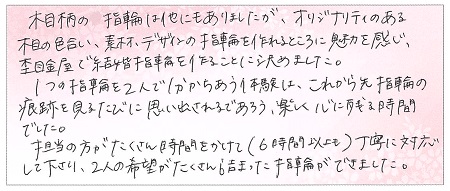 木目柄の指輪は他にもありましたが、オリジナリティのある
木目の色合い、素材、デザインの指輪を作れるところに魅力を感じ、
杢目金屋で結婚指輪を作ることに決めました。
1つの指輪を2人で分かちあう体験は、これから先指輪の
痕跡を見るたびに思い出されるであろう、楽しく心に残る時間
でした。
担当の方がたくさん時間をかけて(6時間以上も)丁寧に対応
して下さり、2人の希望がたくさん詰まった指輪ができました。